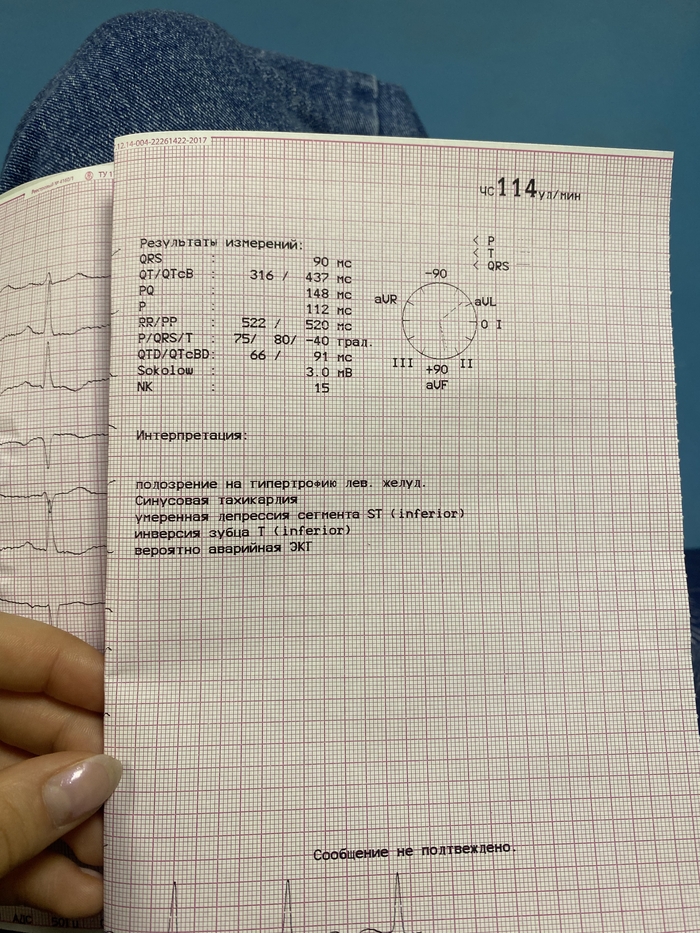 12.14-004-22261422-2017
ТУ 1
ЧС 114 уд/мин
Результаты измерений:
QRS : 90 мс
QT/QTcB : 316 / 437 мс
PQ : 148 мс
P : 112 мс
RR/PP : 522 / 520 мс
P/QRS/T : 75/ 80/ -40 град.
QTD/QTcBD: 66 / 91 мс
Sokolow : 3.0 мВ
NK : 15
< P
< T
< QRS
-90
aVR
aVL
0 I
III
+90
II
aVF
Интерпретация:
подозрение на гипертрофию лев. желуд.
Синусовая тахикардия
умеренная депрессия сегмента ST (inferior)
инверсия зубца T (inferior)
вероятно аварийная ЭКГ
Сообщение не подтвеждено.